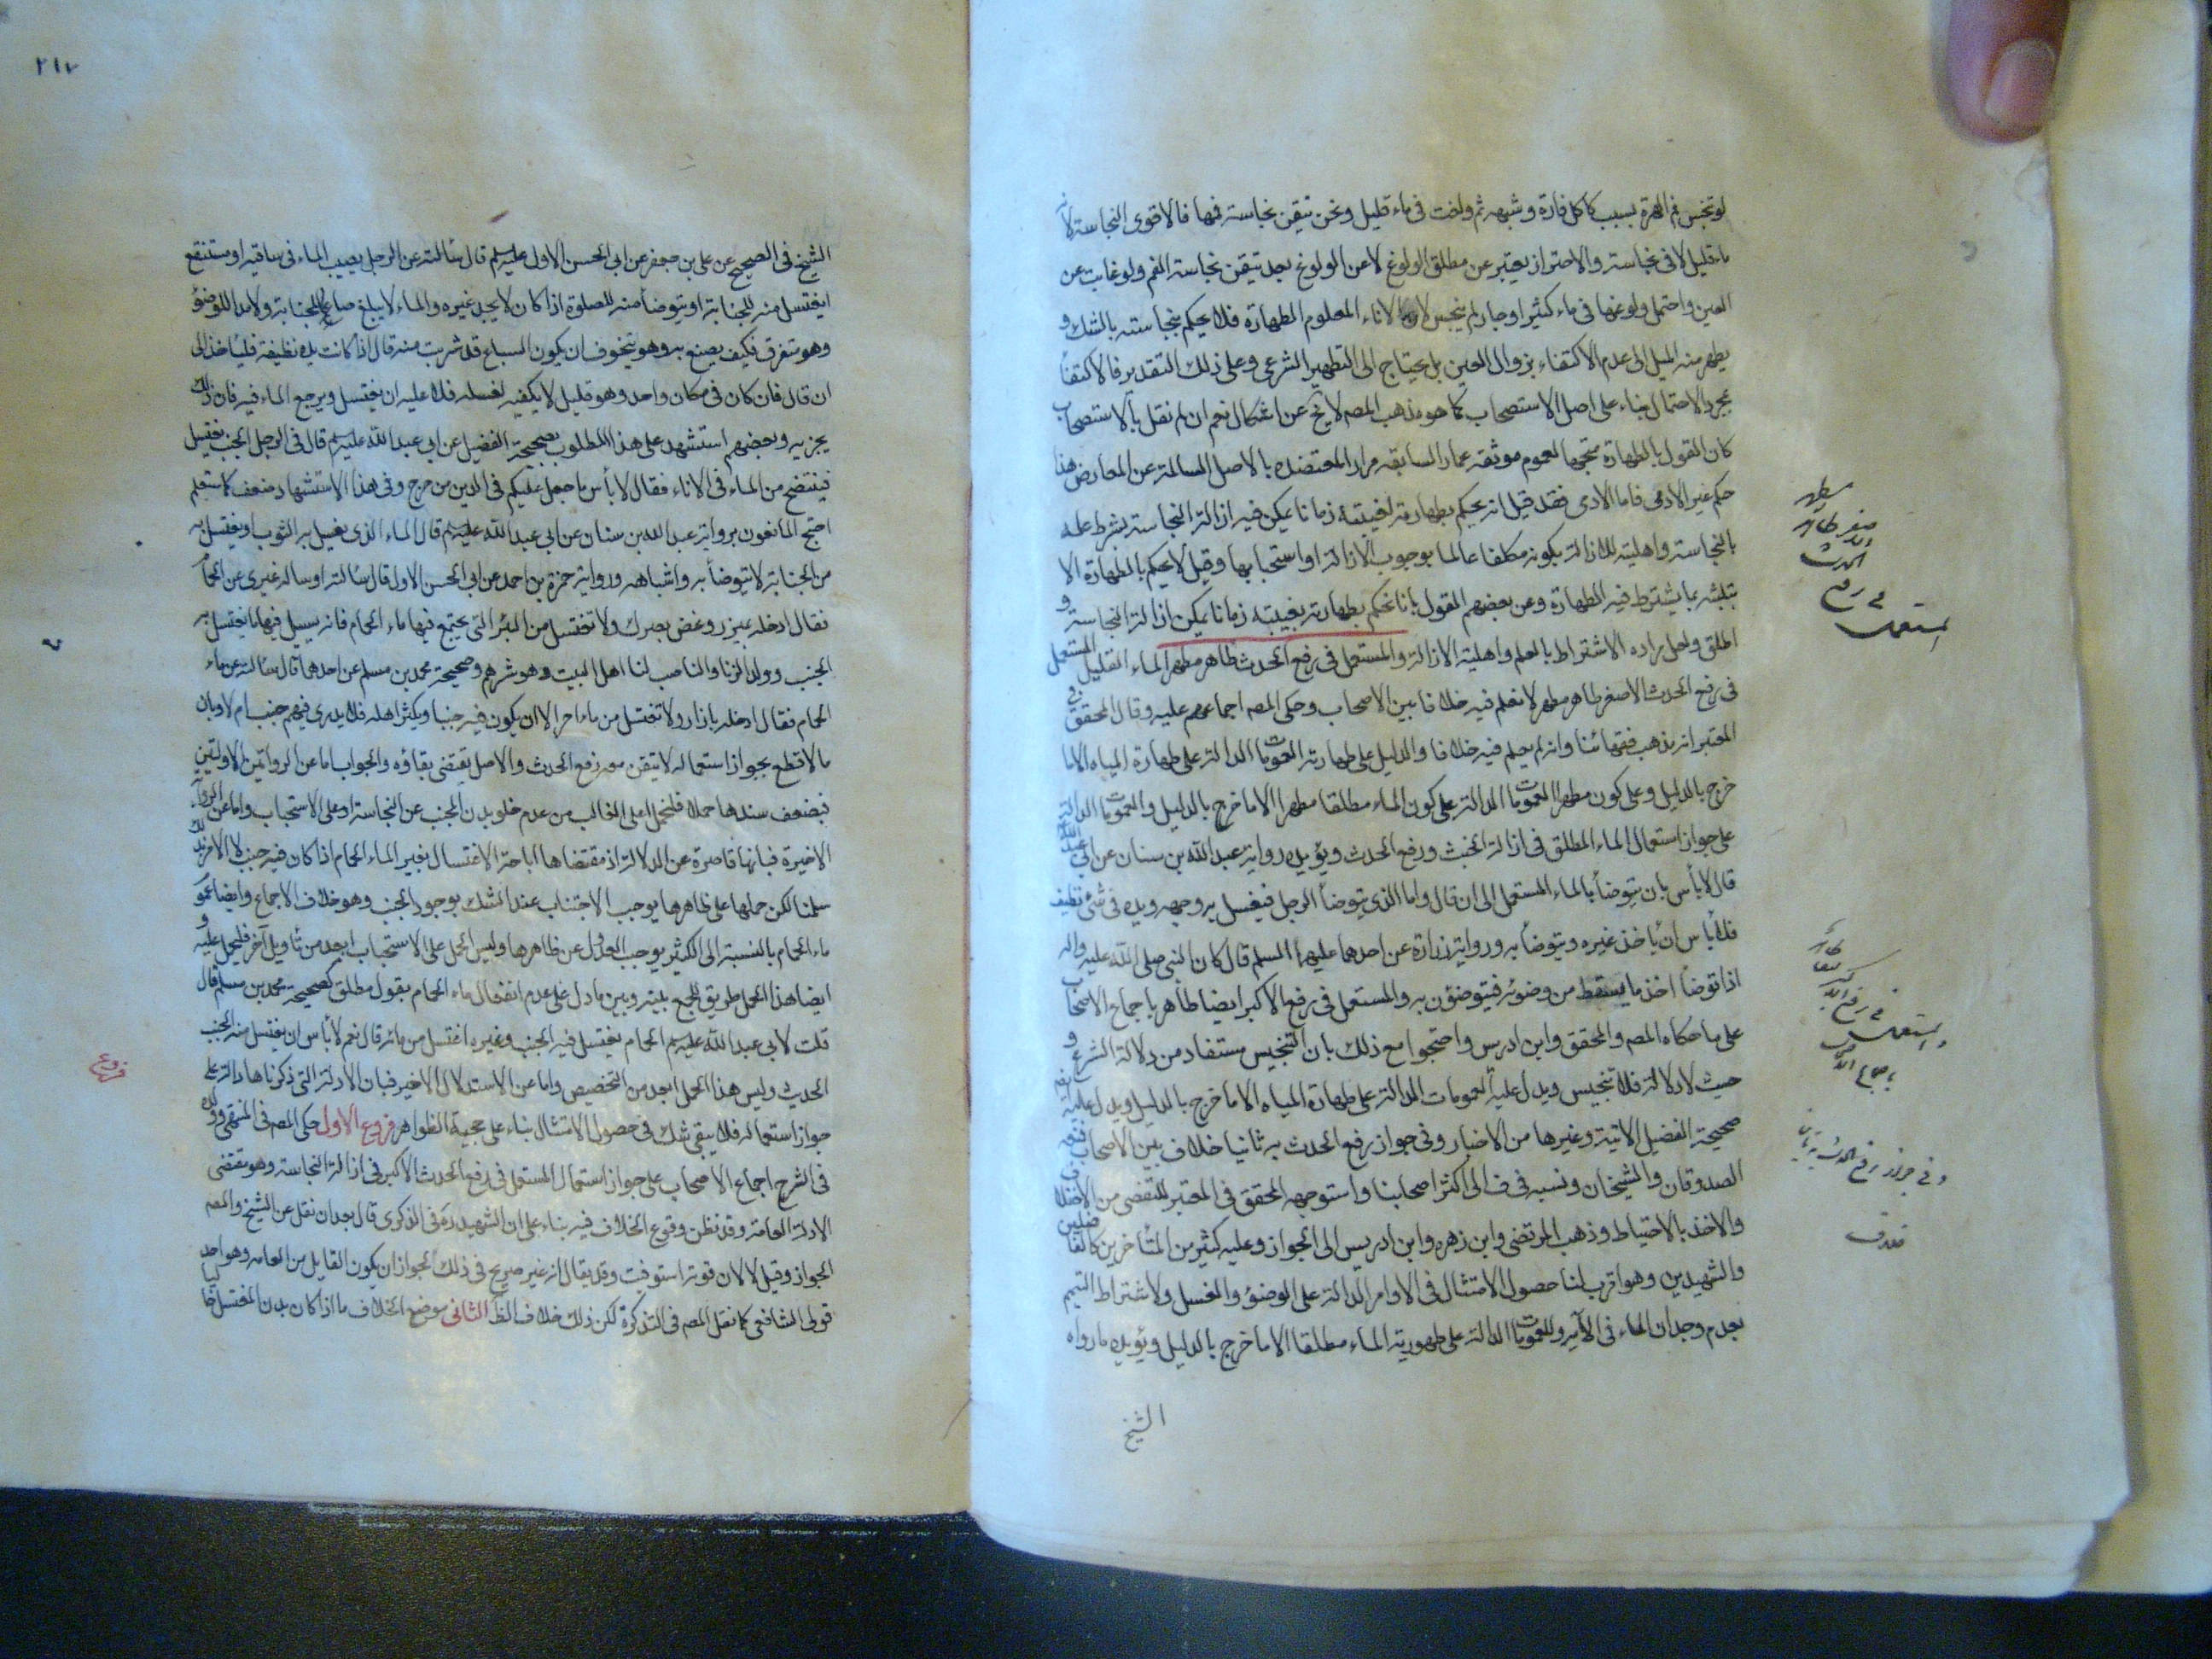 لو تنجس فم الهرة بسبب كاكل فارة وشبهه ثم ولغت فى ماء قليل ونحن نتيقن نجاسة فمها فالاقوى النجاسة لانه
ماء قليل لاقى نجاسة والاحتراز يعتبر عن مطلق الولوغ لا عن الولوغ بعد تيقن نجاسة الفم ولو غابت عن
العين واحتمل ولوغها فى ماء كثير او جار لم ينجس لان الاناء المعلوم الطهارة فلا يحكم بنجاسته بالشك و
يظهر منه الميل الى عدم الاكتفاء بزوال العين بل يحتاج الى التطهير الشرعى وعلى ذلك التقدير فالاكتفا
بمجرد الاحتمال بناء على اصل الاستصحاب كما هو مذهب المصه لا يخ عن اشكال نعم ان لم نقل بالاستصحاب
كان القول بالطهارة متجها لعموم موثقة عمار السابقه مرارا المعتضده بالاصل السالمة عن المعارض هذا
حكم غير الادمى فاما الادمى فقد قيل انه يحكم بطهارته لغيبته زمانا يمكن فيه ازالة النجاسة بشرط علمه
بالنجاسة واهليته للازالة بكونه مكلفا عالما بوجوب الازالة او استحبابها وقيل لا يحكم بالطهارة الا
بتلبثه بما يشترط فيه الطهارة وعن بعضهم القول بانا نحكم بطهارته بغيبته زمانا يمكن ازالة النجاسة و
اطلق ولعل مراده الاشتراط بالعلم واهلية الازالة والمستعمل فى رفع الحدث طاهر مطهر الماء القليل المستعمل
فى رفع الحدث الاصغر طاهر مطهر لا نعلم فيه خلافا بين الاصحاب وحكى المصه اجماعهم عليه وقال المحقق فى
المعتبر انه مذهب فقهائنا وانه لم يعلم فيه خلافا والدليل على طهارته العمومات الدالة على طهارة المياه الا ما
خرج بالدليل وعلى كونه مطهرا العمومات الدالة على كون الماء مطلقا مطهرا الا ما خرج بالدليل والعمومات الدالة
على جواز استعمال الماء المطلق فى ازالة الخبث ورفع الحدث ويؤيده رواية عبد الله بن سنان عن ابى عبد الله
قال لا بأس بان يتوضأ بالماء المستعمل الى ان قال واما الذى يتوضأ الرجل فيغسل به وجهه ويده فى شئ نظيف
فلا بأس ان ياخذ غيره ويتوضأ به ورواية زرارة عن احدهما عليهما السلم قال كان النبى صلى الله عليه واله
اذا توضأ اخذ ما يسقط من وضوئه فيتوضؤن به والمستعمل فى رفع الاكبر ايضا طاهر باجماع الاصحاب
على ما حكاه المصه والمحقق وابن ادريس واحتجوا مع ذلك بان التنجيس مستفاد من دلالة الشرع و
حيث لا دلالة فلا تنجيس ويدل عليه العمومات الدالة على طهارة المياه الا ما خرج بالدليل ويدل عليه ايضا
صحيحة الفضيل الاتية وغيرها من الاخبار وفى جواز رفع الحدث به ثانيا خلاف بين الاصحاب فمنعه
الصدوقان والشيخان ونسبه فى ف الى اكثر اصحابنا واستوجهه المحقق فى المعتبر للتفصى من الاختلاف
والاخذ بالاحتياط وذهب المرتضى وابن زهره وابن ادريس الى الجواز وعليه كثير من المتأخرين كالفاضلين
والشهيدين وهو اقرب لنا حصول الامتثال فى الاوامر الدالة على الوضؤ والغسل ولاشتراط التيمم
بعدم وجدان الماء فى الآية وللعمومات الدالة على طهورية الماء مطلقا الا ما خرج بالدليل ويؤيده ما رواه
الشيخ
المستعمل
فى رفع
الحدث
وفى جواز رفع الحدث به ثانيا
٢١٧
الشيخ فى الصحيح عن على بن جعفر عن ابى الحسن الاول عليه السلم قال سألته عن الرجل يصيب الماء فى ساقيه او مستنقع
ايغتسل منه للجنابة او يتوضأ منه للصلوة اذا كان لا يجد غيره والماء لا يبلغ صاعا للجنابة ولا مدا للوضؤ
وهو متفرق فكيف يصنع به وهو يتخوف ان يكون السباع قد شربت منه قال اذا كانت يده نظيفة فلياخذ الى
ان قال فان كان فى مكان واحد وهو قليل لا يكفيه لغسله فلا عليه ان يغتسل ويرجع الماء فيه فان ذلك
يجزيه وبعضهم استشهد على هذا المطلوب بصحيحة الفضيل عن ابى عبد الله عليه السلم قال فى الرجل الجنب يغتسل
فينتضح من الماء فى الاناء فقال لا بأس ما جعل عليكم فى الدين من حرج وفى هذا الاستشهاد ضعف كما ستعلم
احتج المانعون برواية عبد الله بن سنان عن ابى عبد الله عليه السلم قال الماء الذى يغسل به الثوب او يغتسل به
من الجنابة لا يتوضأ به واشباهه ورواية حمزة بن احمد عن ابى الحسن الاول قال سألته او ساله غيرى عن الحمام
فقال ادخله بميزر وغض بصرك ولا تغتسل من البئر التى يجتمع فيها ماء الحمام فانه يسيل فيها ما يغتسل به
الجنب وولد الزنا والناصب لنا اهل البيت وهو شرهم وصحيحة محمد بن مسلم عن احدهما قال سالته عن ماء
الحمام فقال ادخله بازار ولا تغتسل من ماء اخر الا ان يكون فيه جنب او يكثر اهله فلا يدرى فيهم جنب ام لا وبان
ما لا قطع بجواز استعماله لا تيقن معه رفع الحدث والاصل يقتضى بقاؤه والجواب اما عن الروايتين الاولتين
فبضعف سندها حملا فلتحمل على الغالب من عدم خلو بدن الجنب عن النجاسة او على الاستحباب واما عن الرواية
الاخيرة فبانها قاصرة عن الدلالة اذ مقتضاها اباحة الاغتسال بغير الماء الحمام اذا كان فيه جنب لا الامر بذلك
سلمنا لكن حملها على ظاهرها يوجب الاجتناب عند الشك بوجود الجنب وهو خلاف الاجماع وايضا عموم
ماء الحمام بالنسبة الى الكثير يوجب العدول عن ظاهرها وليس الحمل على الاستحباب ابعد من تأويل آخر فليحمل عليه و
ايضا هذا الحمل طريق للجمع بينه وبين ما دل على عدم انفعال ماء الحمام بقول مطلق كصحيحة محمد بن مسلم قال
قلت لابى عبد الله عليه السلم الحمام يغتسل فيه الجنب وغيره اغتسل من مائه قال نعم لا بأس ان يغتسل منه الجنب
الحديث وليس هذا الحمل ابعد من التخصيص واما عن الاستدلال الاخير فبان الادلة التى ذكرناها دالة على
جواز استعماله فلا يبقى شك فى حصول الامتثال بناء على حجية الظواهر فروع الاول حكى المصه فى المنتهى وولده
فى الشرح اجماع الاصحاب على جواز استعمال المستعمل فى رفع الحدث الاكبر فى ازالة النجاسة وهو مقتضى
الادلة العامة وقد نظن وقوع الخلاف فيه بناء على ان الشهيد ره فى الذكرى قال بعد ان نقل عن الشيخ والمصه
الجواز وقيل لا لان قوته استوفيت وقد يقال انه غير صريح فى ذلك لجواز ان يكون القايل من العامه وهو احد
قولى الشافعى كما نقل المصه فى التذكرة لكن ذلك خلاف الظ الثانى موضع الخلاف ما اذا كان بدن المغتسل خاليا
فروع